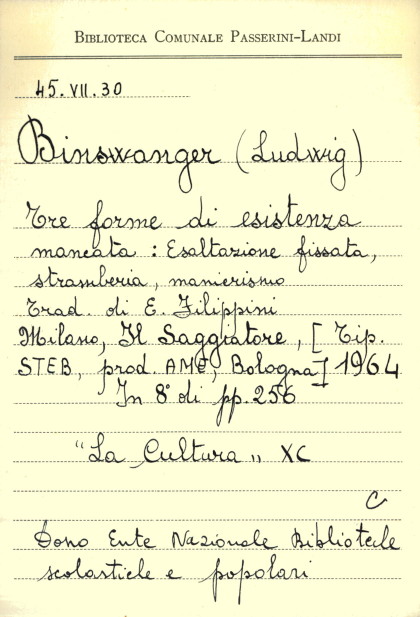 BIBLIOTECA COMUNALE PASSERINI-LANDI
45.VII.30
Binswanger (Ludwig)
Tre forme di esistenza
mancata : Esaltazione fissata,
stramberia, manierismo
Trad. di E. Filippini
Milano, Il Saggiatore, [Tip.
STEB, prod. AME, Bologna] 1964
In 8° di pp. 256
"La Cultura" XC
C
Dono Ente Nazionale Biblioteche
scolastiche e popolari